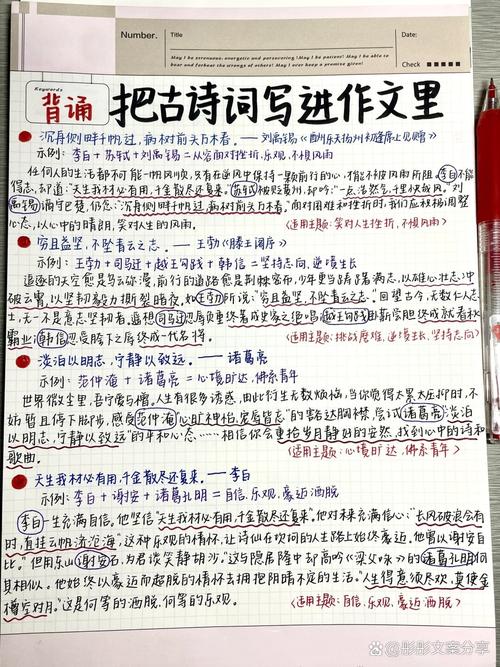 Number.
Title
Date:
May I be serenous, energetic and persevering! May I be patient! May I be able to
bear and forbear the wrongs of others! May I ever keep a promise given!
Check
Keywords
背诵
把古诗词写进作文里
沉舟侧畔千帆过,病树前头万木春。——刘禹锡《酬乐天扬州初逢席上见赠》
示例:李白+苏轼+刘禹锡=从容面对挫折,乐观,不惧风雨
任何人的生活都不可能一帆风顺,只有在逆风中保持一颗前行的心,才能不被风雨所阻。李白不能
得志,却道:"天生我材必有用,千金散尽还复来。"苏轼被贬黄州,却吟:"一点浩然气,千里快哉风。"刘
禹锡谪守巴楚,仍念:"沉舟侧畔千帆过,病树前头万木春。"面对困难和挫折时,我们应积极调整
心态,以心中的晴朗,笑对人生的风雨。
(适用主题:笑对人生挫折,不惧风雨)
穷且益坚,不坠青云之志。——王勃《滕王阁序》
示例:王勃+司马迁+越王勾践+韩信=坚持志向,逆境生长
追逐的天空愈是乌云弥漫,前行的道路愈是荆棘密布,少年更当踌躇满志,以雄心壮志,冲
破云霄,以坚韧毅力撕裂暗夜,如王勃所说:"穷且益坚,不坠青云之志。"回望古今,无数仁人志
士,无一不是意志坚韧者,遥想司马迁忍辱负重终著成史家之绝唱,越王勾践卧薪尝胆终成就春秋
霸业;韩信忍受胯下之辱终成一代名将。
(适用主题:挑战磨难,逆境生长,坚持志向)
淡泊以明志,宁静以致远。——诸葛亮
示例:范仲淹+诸葛亮=心境旷达,佛系青年
世界微尘里,吾宁爱与憎,人生有很多诱惑,由此衍生无数烦恼,当你觉得太累太压抑时,不
妨暂且停下脚步,感受范仲淹"心旷神怡,宠辱皆忘"的豁达胸襟,尝试诸葛亮"淡泊
以明志,宁静以致远"的平和心态……相信你会重拾岁月静好的安然,找到心中的诗和
歌曲。
(适用主题:心境旷达,佛系青年)
天生我材必有用,千金散尽还复来。——李白
示例:李白+谢安+诸葛孔明=自信,乐观,豪迈洒脱
李白一生充满自信,他坚信"天生我材必有用,千金散尽还复来。"他对未来充满信心:"长风破浪会有
时,直挂云帆济沧海",这种乐观的情怀,让诗仙在坎坷的人生路上始终豪迈,他常以谢安自
比:"但用东山谢安石,为君谈笑静胡沙。"这与隐居隆中却高吟《梁父吟》的诸葛孔明何
其相似。他始终以豪迈而超脱的情怀去拥抱阴晴不定的生活。"人生得意须尽欢,莫使金
樽空对月。"这是何等的洒脱,何等的乐观。
(适用主题:自信,乐观,豪迈洒脱)
彤彤文案分享